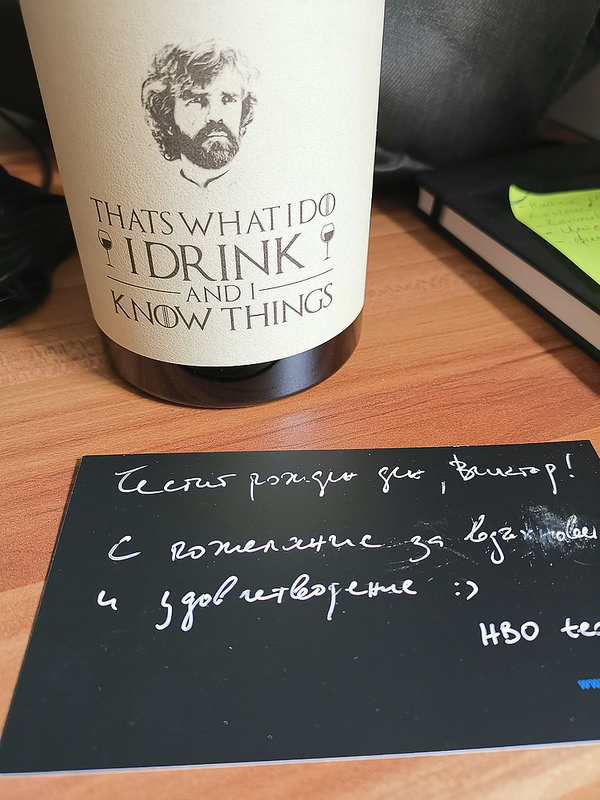 THATS WHAT I DO
I DRINK
AND I
KNOW THINGS
Честит рожден ден, Виктор!
С пожелание за
и удовлетворение :)
HBO